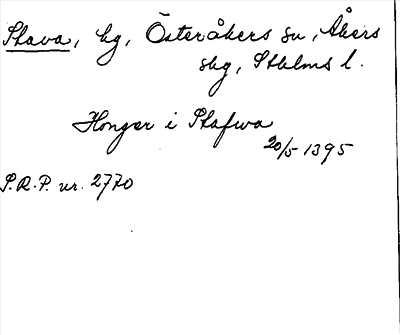 Stava, by, Österåkers sn, Åkers
skg, Sthlms l.
Honger i Stafwa
20/5 1395
S.R.P. nr. 2770